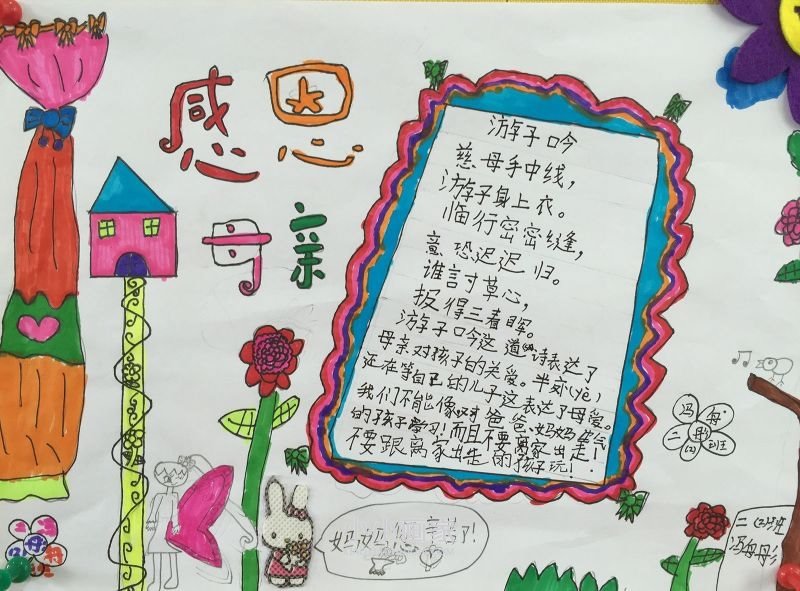 感恩
母亲
游子吟
慈母手中线，
游子身上衣。
临行密密缝，
意恐迟迟归。
谁言寸草心，
报得三春晖。
游子吟这道诗表达了
母亲对孩子的关爱。半夜(yè)
还在等自己的儿子这表达了母爱。
我们不能像对爸爸、妈妈生气
的孩子学习！而且不要离家出走！
不要跟离家出走的孩子玩！
妈妈，您辛苦了！
二(2)班